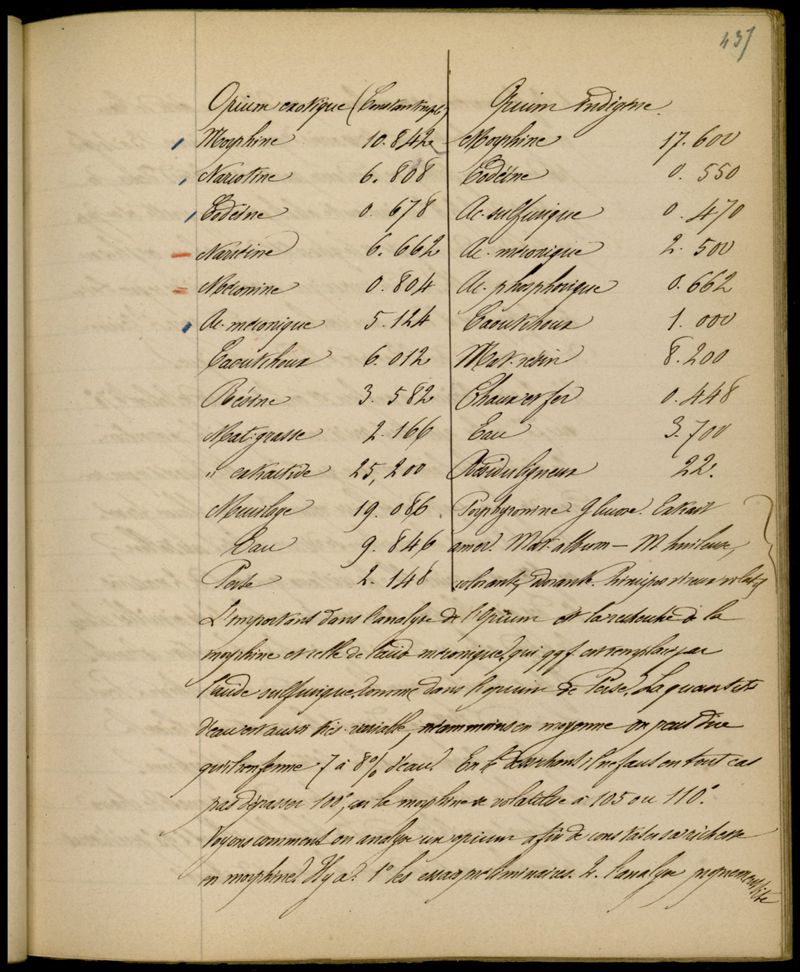 437
Opium exotique (Constantinople) Opium indigène.
Morphine 10.842 Morphine 17.600
Narcotine 6.808 Codéine 0.550
Codéine 0.678 Ac. sulfurique 0.470
Narcéine 6.662 Ac. méconique 2.500
Méconine 0.804 Ac. phosphorique 0.662
Ac. méconique 5.124 Caoutchouc 1.000
Caoutchouc 6.012 Mat. résin 8.200
Résine 3.582 Chaux et fer 0.448
Mat. grasse 2.166 Eau 3.700
" extractive 25,200 Résidu ligneux 22.
Mucilage 19.086. Porphyroxine Glucose. Extrait
Eau 9.846 amer. Mat. album — M. huileuse,
Perte 2.148 colorante, odorante. Principes vireux volat.
L'important dans l'analyse de l'opium est la recherche de la
morphine et celle de l'acide méconique, qui qqf est remplacé par
l'acide sulfurique, comme dans l'opium de Perse. La quantité
d'eau est aussi très variable, néanmoins en moyenne on peut dire
qu'il renferme 7 à 8% d'eau. En le desséchant il ne faut en tout cas
pas dépasser 100°, car la morphine se volatilise à 105 ou 110°.
Voyons comment on analyse un opium afin de constater sa richesse
en morphine. Il y a. 1° les essais préliminaires. 2. l'analyse proprement dite